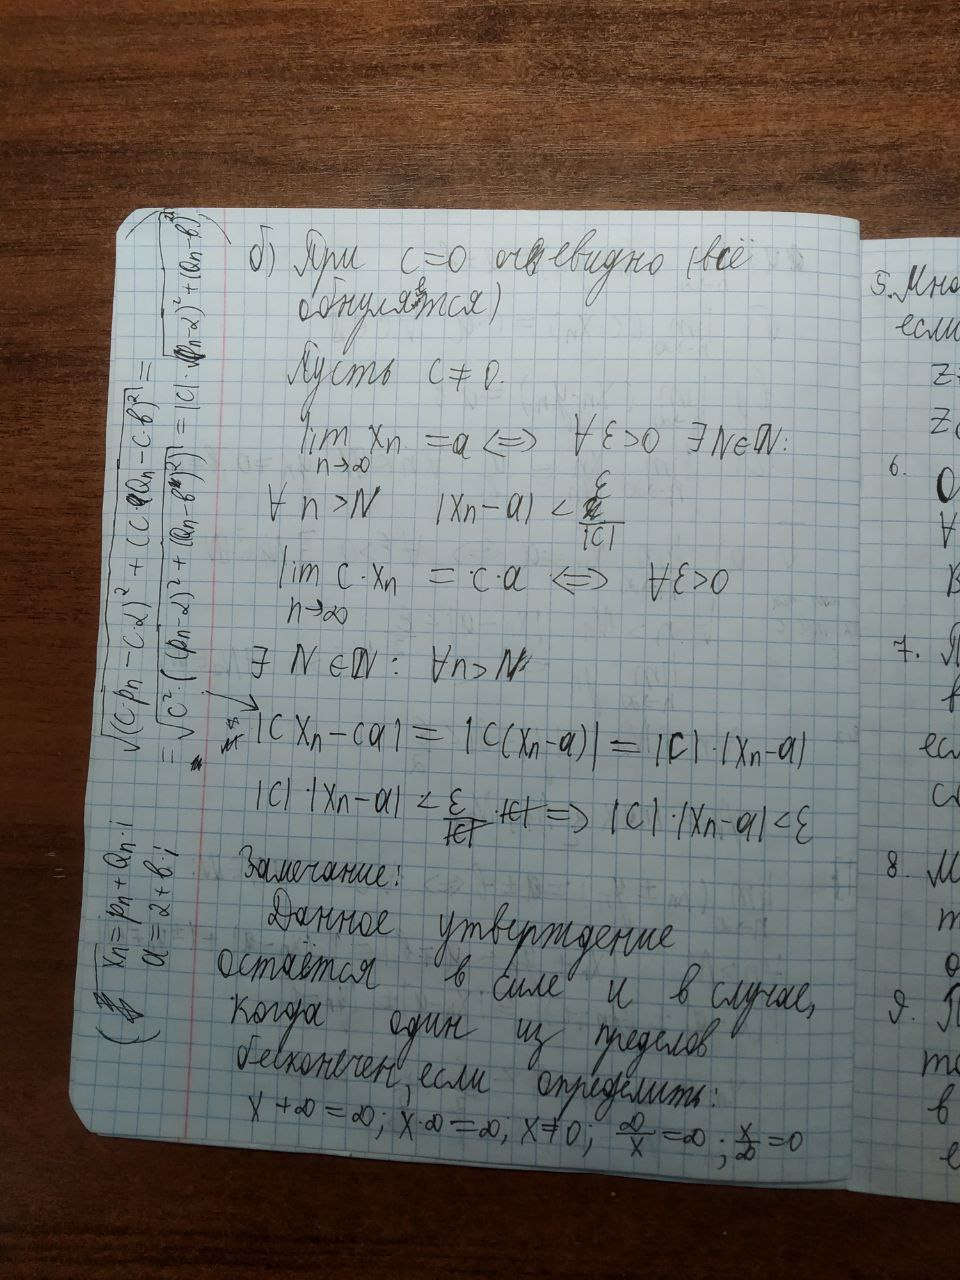 б) При c=0 очевидно (всё
обнуляется)
Пусть c≠0.
lim xₙ = a ⟺ ∀ε>0 ∃N∈ℕ:
n→∞
∀n>N |xₙ-a| < ε/|c|
lim c·xₙ = c·a ⟺ ∀ε>0
n→∞
∃ N∈ℕ: ∀n>N
|cxₙ-ca| = |c(xₙ-a)| = |c|·|xₙ-a|
|c|·|xₙ-a| < ε/|c|·|c| ⟸ |c|·|xₙ-a|<ε
Замечание:
Данное утверждение
остаётся в силе и в случае,
когда один из пределов
бесконечен, если определить:
x+∞=∞; x·∞=∞; x≠0; ∞/x=∞; x/∞=0
xₙ=pₙ+qₙ·i
a=α+b·i
√((c·pₙ-c·α)²+(c·qₙ-c·b)²) =
= √(c²·((pₙ-α)²+(qₙ-b)²)) = |c|·√((pₙ-α)²+(qₙ-b)²)
5. Мно
если
z
z
6.
∀
7. П
в
ес
8. М
т
9. П
то
в
е